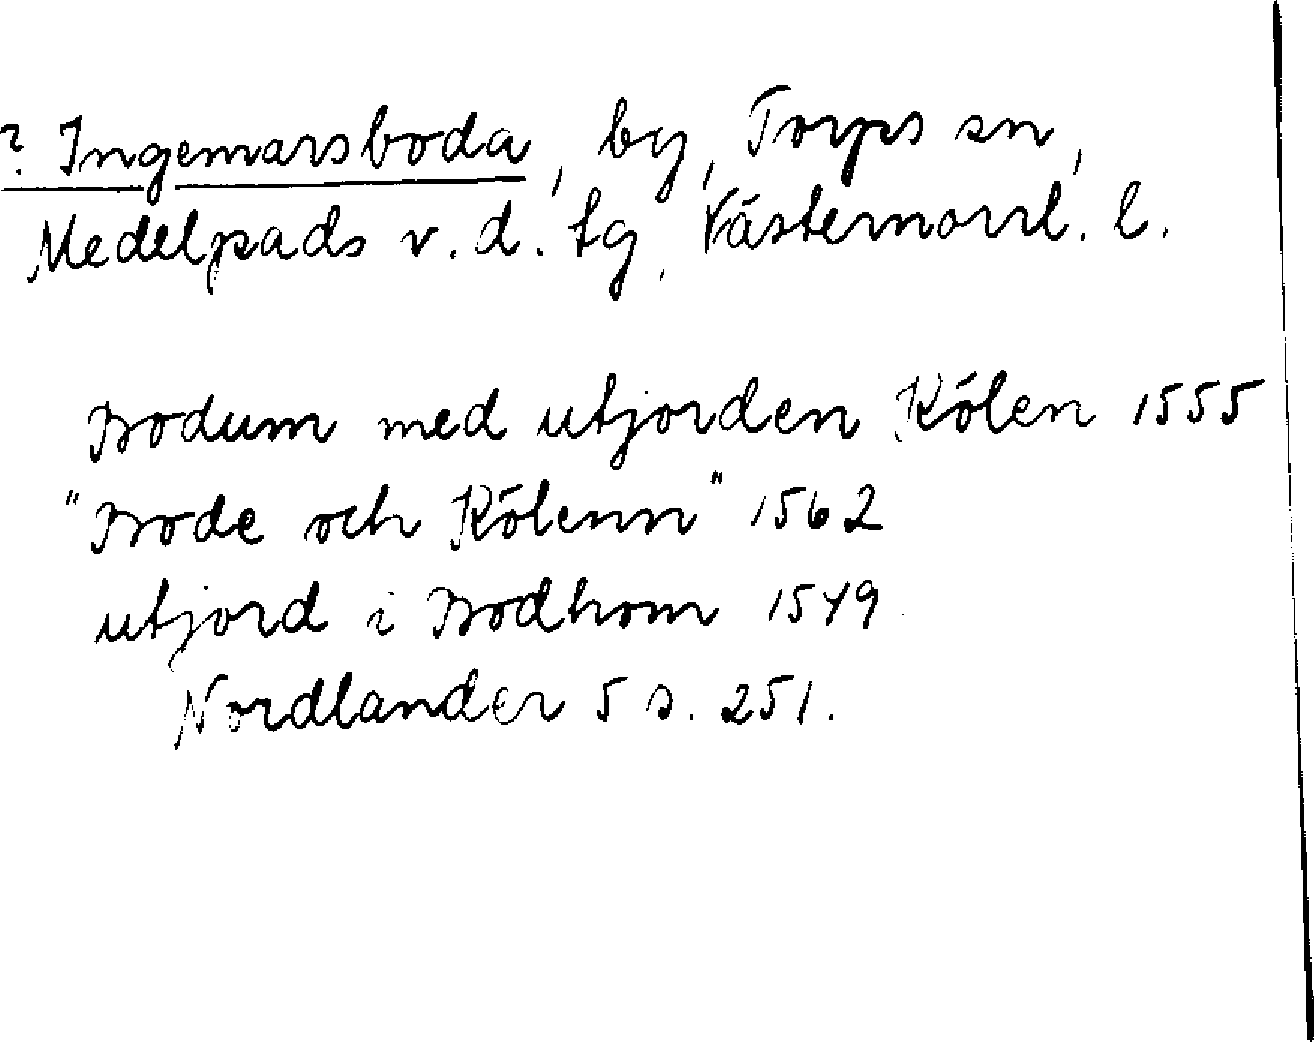 ? Ingemarsboda, by, Torps sn,
Medelpads v.d. tg, Västernorrl. l.
Bodum med utjorden Kölen 1555
"Bode och Kölenn" 1562
utjord i Bodhom 1549
Nordlander 5 s. 251.